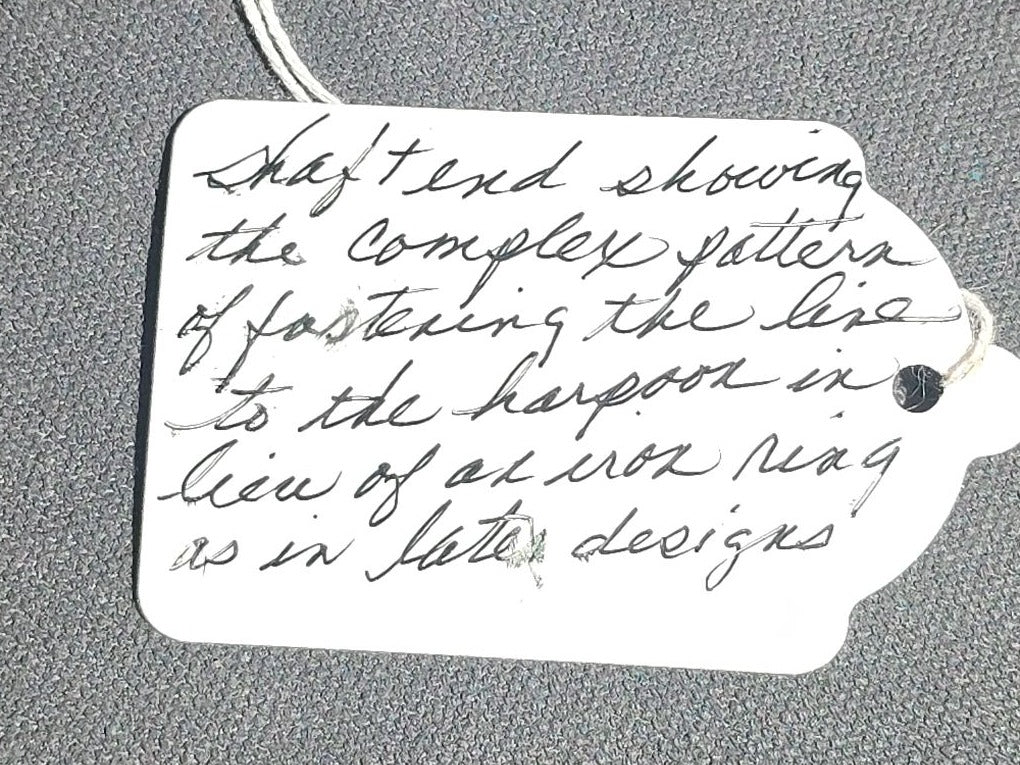 shaft end showing
the complex pattern
of fastening the line
to the harpoon in
lieu of an iron ring
as in later designs